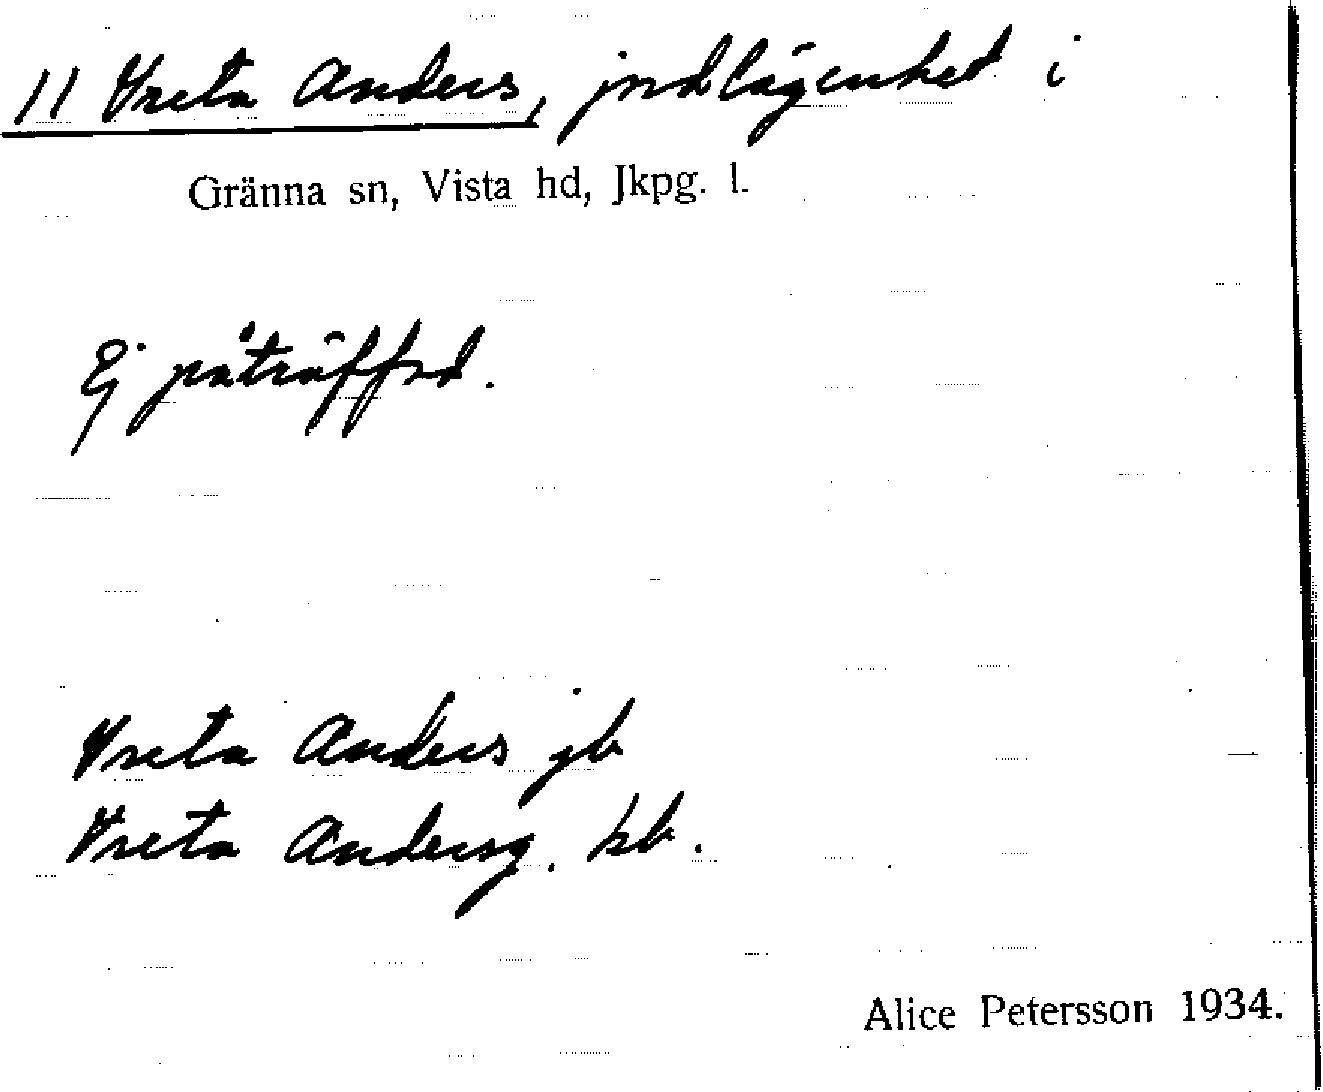 11 Vreta Anders, jrdlägenhet i
Gränna sn, Vista hd, Jkpg. l.
Ej påträffad.
Vreta Anders jb
Vreta Andersg. kb.
Alice Petersson 1934.